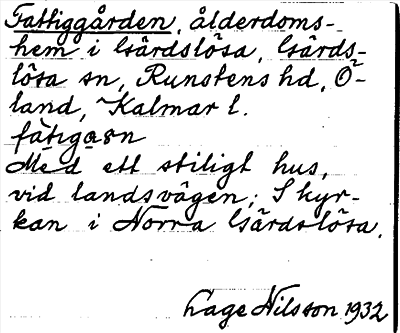 Fattiggården, ålderdoms-
hem i Gärdslösa, Gärds-
lösa sn, Runstens hd, Ö-
land, Kalmar l.
fàtigaṣn
Med ett stiligt hus,
vid landsvägen; S kyr-
kan i Norra Gärdslösa.
Lage Nilsson 1932